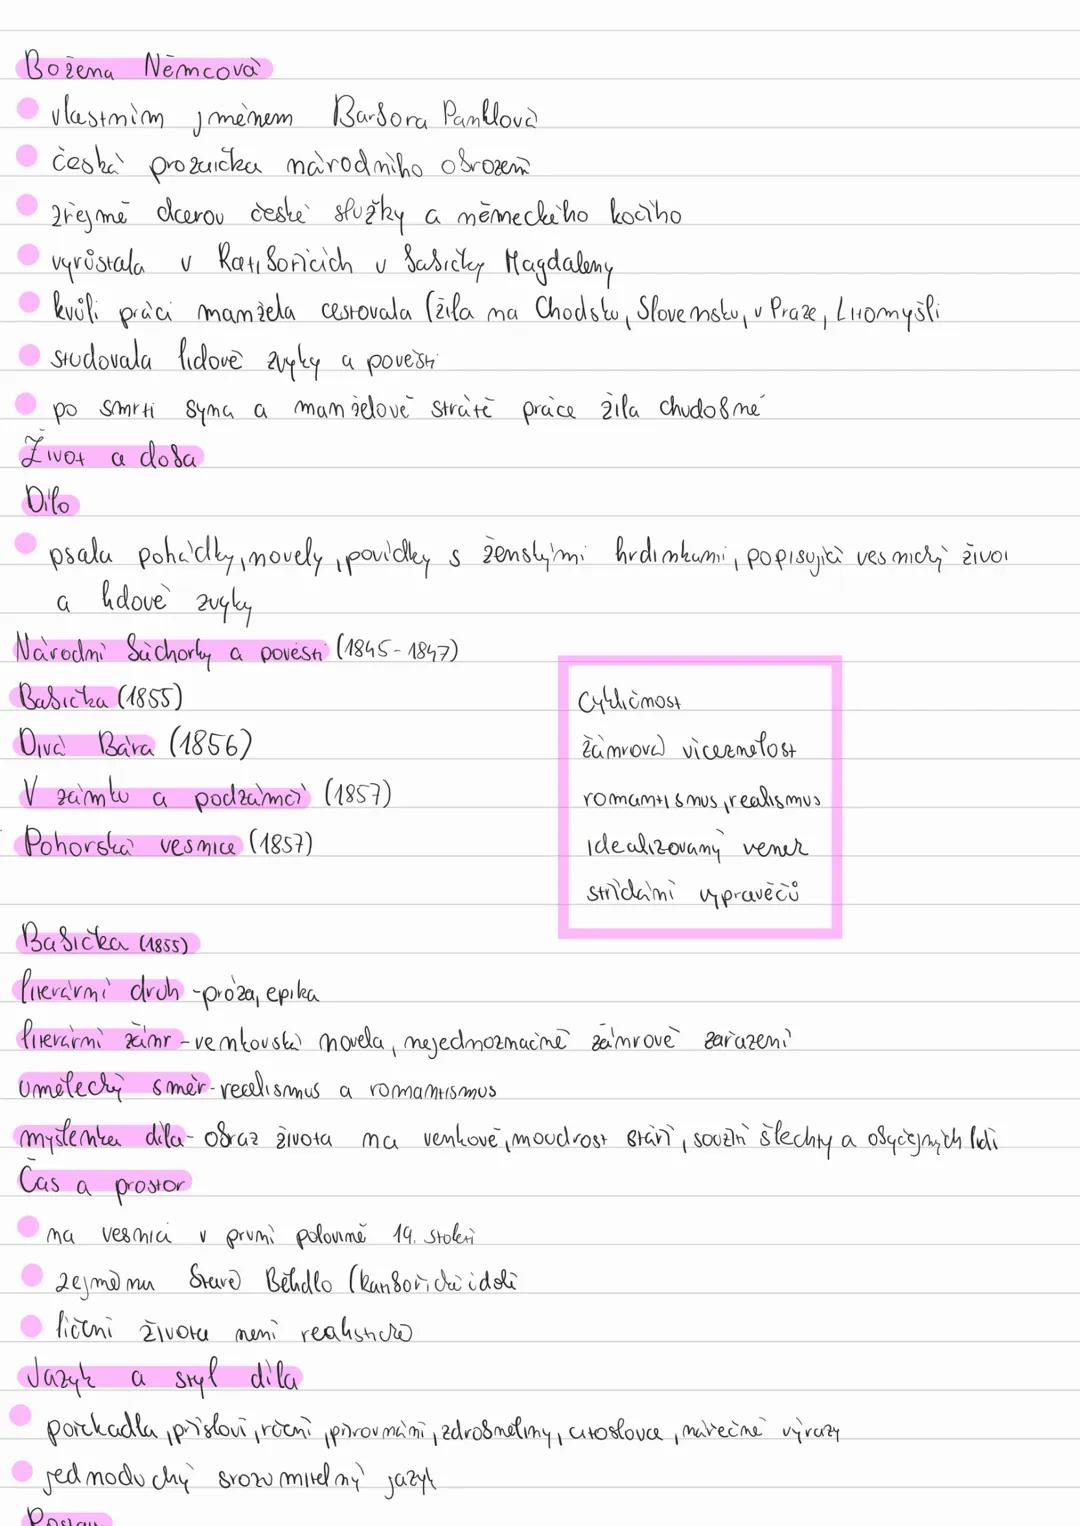 Božena Němcová
vlastním jménem Barbora Panklová
česká prozaička národního obrození
zřejmě dcerou české služky a německého kočího
vyrůstala v Ratibořicích u babičky Magdaleny
kvůli práci manžela cestovala (žila na Chodsku, Slovensku, v Praze, Litomyšli
studovala lidové zvyky a pověsti
po smrti syna a manželově ztrátě práce žila chudobně
Život a doba
Dílo
psala pohádky, novely, povídky s ženskými hrdinkami, popisující vesnický život
a lidové zvyky
Národní báchorky a pověsti (1845-1847)
Babička (1855)
Divá Bára (1856)
V zámku a podzámčí (1857)
Pohorská vesnice (1857)
Cykličnost
žánrová víceznělost
romantismus, realismus
idealizovaný
střídání vypravěčů
Babička (1855)
literární druh - próza, epika
literární žánr - venkovská novela, nejednoznačné žánrové zařazení
umělecký směr - realismus a romantismus
myšlenka díla - obraz života na venkově, moudrost stáří, soužití šlechty a obyčejných lidí
Čas a prostor
na vesnici v první polovině 19. století
zejména Staré Bělidlo
líčení života není realistické
Jazyk a styl díla
pořekadla, přísloví, rčení, přirovnání, zdrobněliny, citoslovce, nářečné výrazy
jednoduchý srozumitelný jazyk